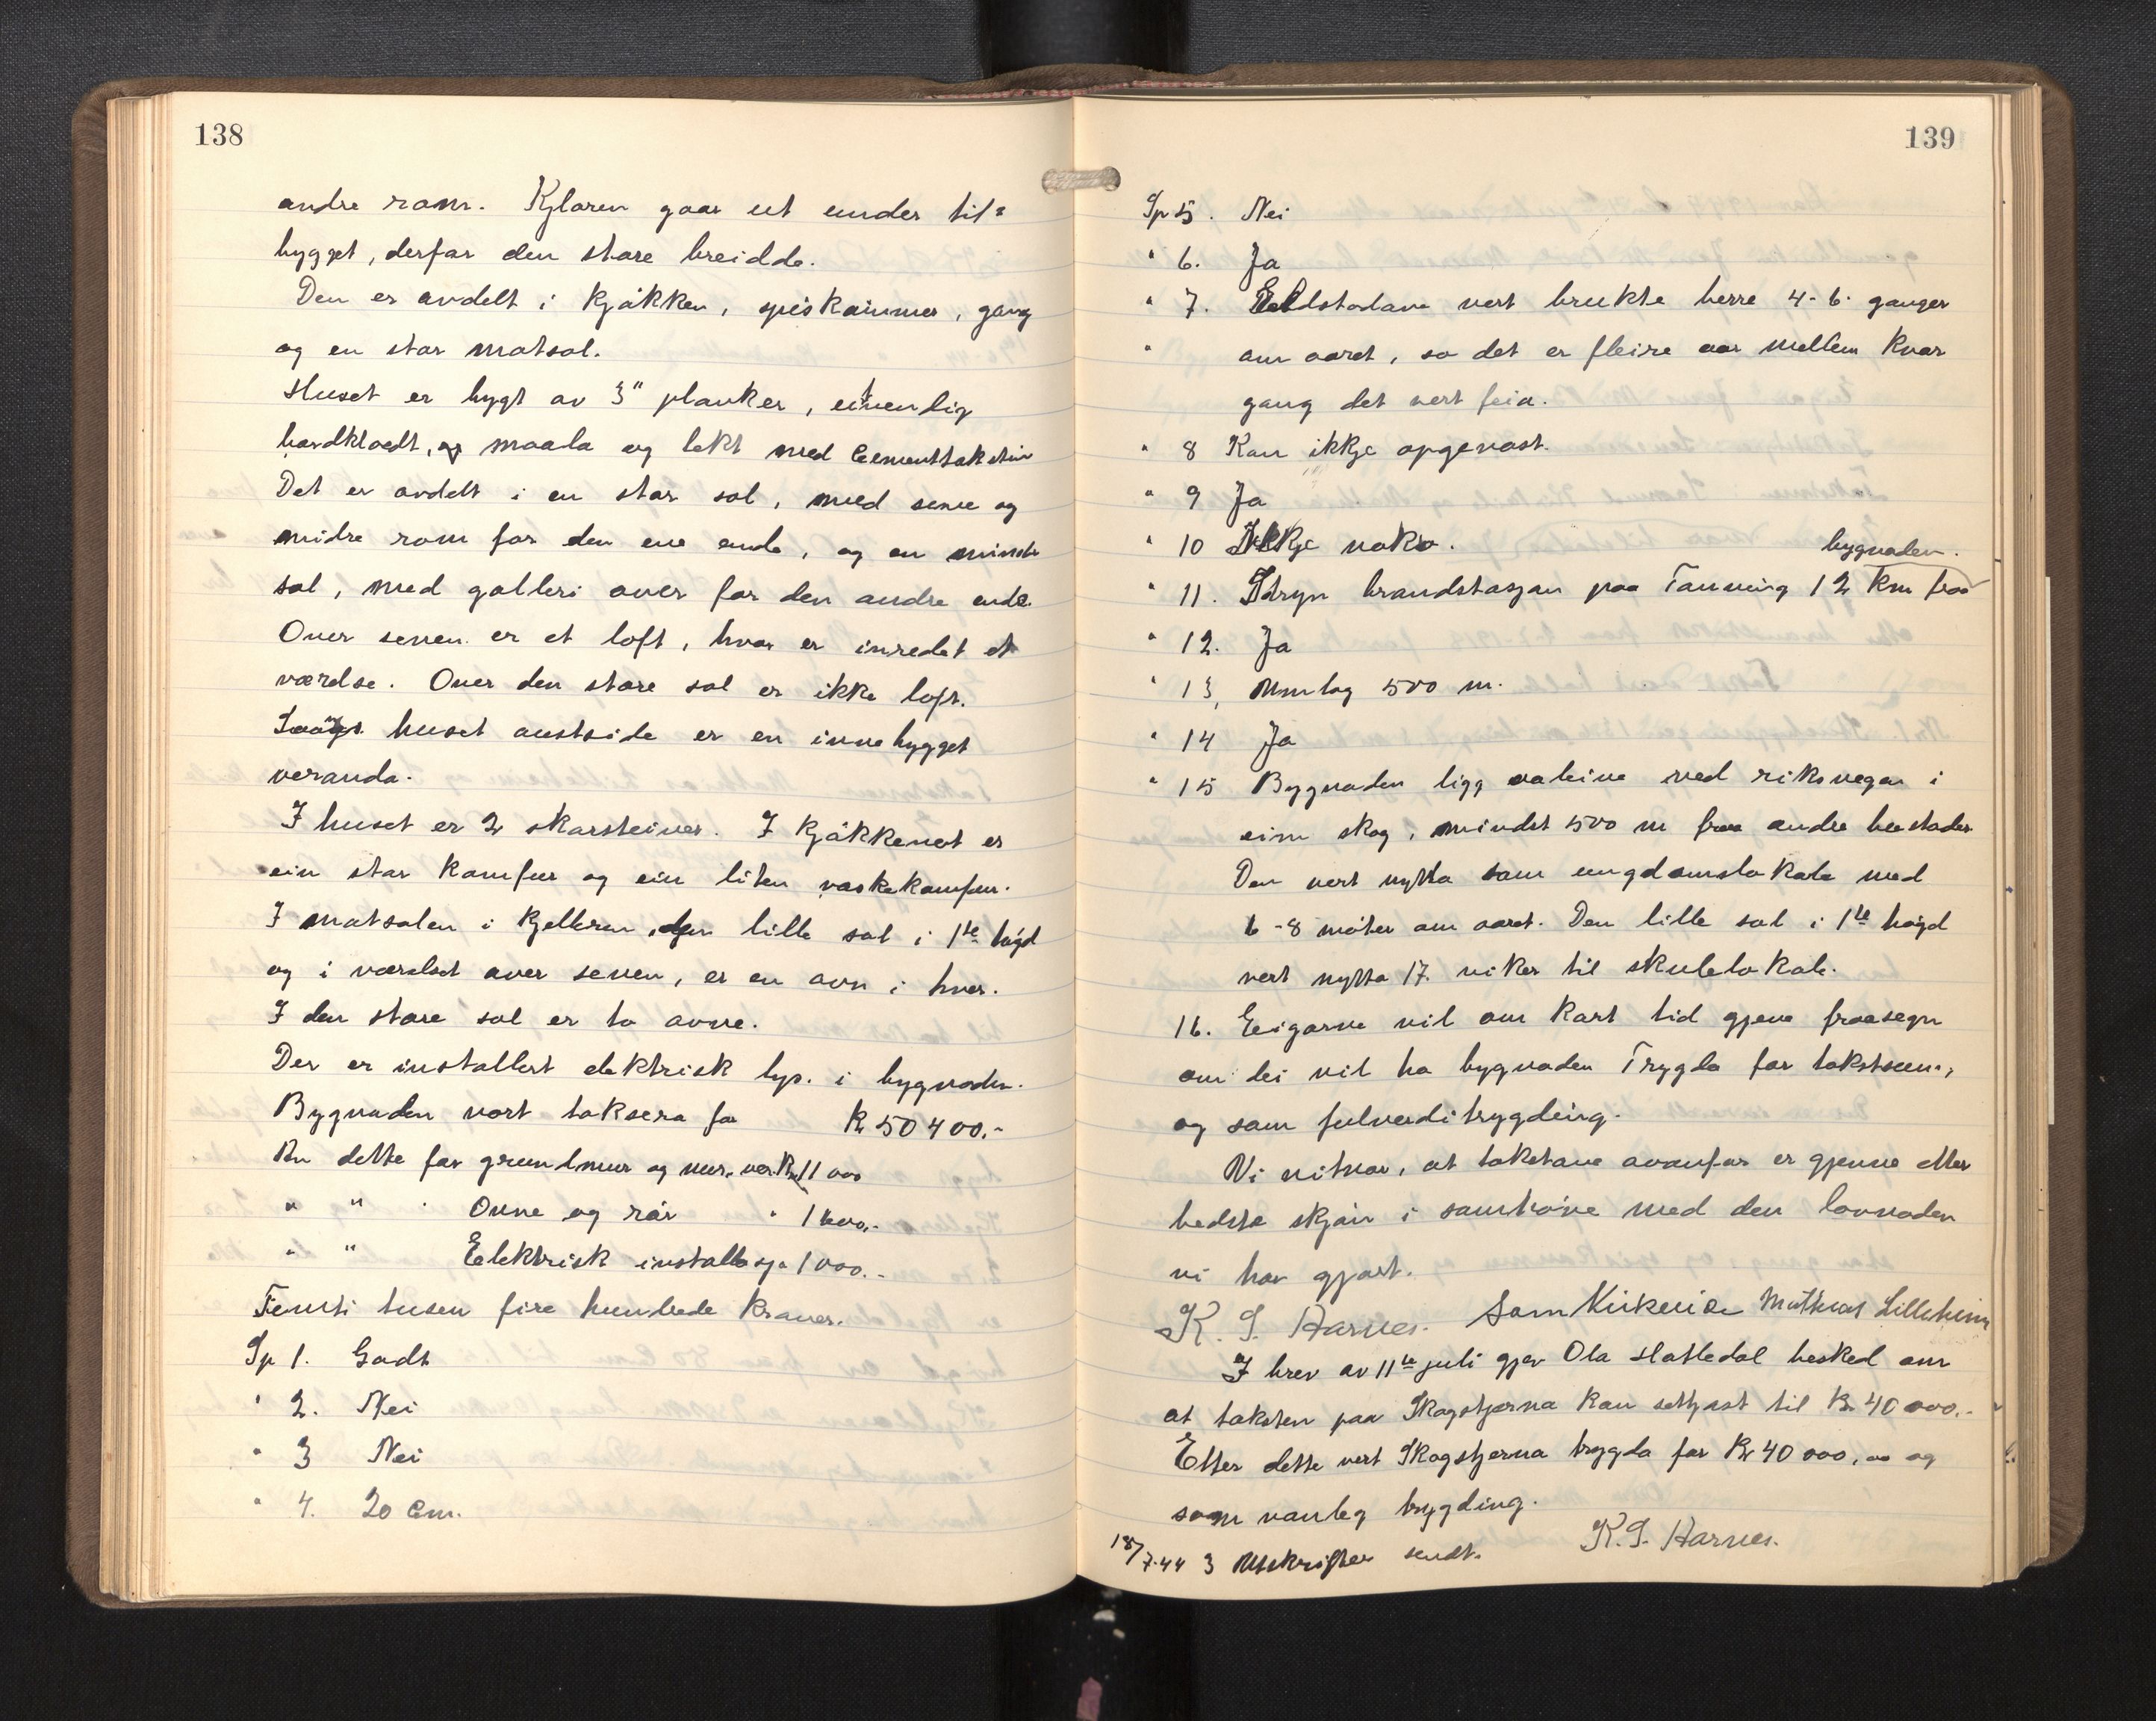 138
andre rom. Kjlaren gaar ut under til=
bygget, derfor den store breidde.
Den er avdelt i kjøkken, spiskammer, gang
og en stor matsal.
Huset er bygt av 3" planker, utvendig
bordklædt, maala og lekt med Cementtakstein
Det er avdelt i en stor sal, med sene og
midre rom for den ene ende, og en mindre
sal, med galleri over for den andre ende.
Over senen er et loft, hvor er inredet et
værelse. Over den store sal er ikke loft.
Langs huset austside er en innebygget
veranda.
I huset er 2 skorsteiner. I kjøkkenet er
ein stor komfur og ein liten vaskekomfur.
I matsalen i kjelleren, den lille sal i 1ste høgd
og i værelset over senen, er en ovn i hver.
I den store sal er to ovne.
Der er installert elektrisk lys. i bygnaden.
Bygnaden vort taksera for Kr 50400.-
Av dette for grunnmur og mur. ver. Kr 11000
" " . Ovne og rør " 1600.-
" " Elektrisk installasj. 1000.-
Femti tusen fire hundrede kroner.
Sp 1. Godt
" 2. Nei
" 3 Nei
" 4. 20 Cm.
139
Sp 5. Nei
" 6. Ja
" 7. Eldstadane vert brukte berre 4-6 ganger
" om aaret, so det er fleire aar mellem kvar
gang det vert feia.
" 8 Kan ikkje opgevast.
" 9 Ja
" 10 Ikkje noko.
bygnaden.
" 11. Stryn brandstasjon paa Tonning 12 km fraa
" 12. Ja
" 13, Umlag 500 m.
" 14 Ja
" 15 Bygnaden ligg aaleine ved riksvegen i
ein skog, mindst 500 m fraa andre bustader
Den vert nytta som ungdomslokale med
6-8 møter om aaret. Den lille sal i 1ste høgd
vert nytta 17. viker til skulelokale.
16. Eigarne vil om kort tid gjeve fraasegn
om dei vil ha bygnaden Trygda for takstsum.,
og som fulverditrygding.
Vi vitnar, at takstane ovanfor er gjevne etter
bedste skjøn i samhøve med den lovnaden
vi har gjort.
K. S. Harnes. Sam Kirkeide Mathias Lilleheim
I brev av 11te juli gjev Ola Hatledal besked om
at taksten paa Skogstjerna kan setjast til Kr 40000.-
Etter dette vert Skogstjerna trygda for Kr 40000,00 og
som vanleg trygding.
K. S. Harnes.
18/7-44 3 Utskrifter sendt.